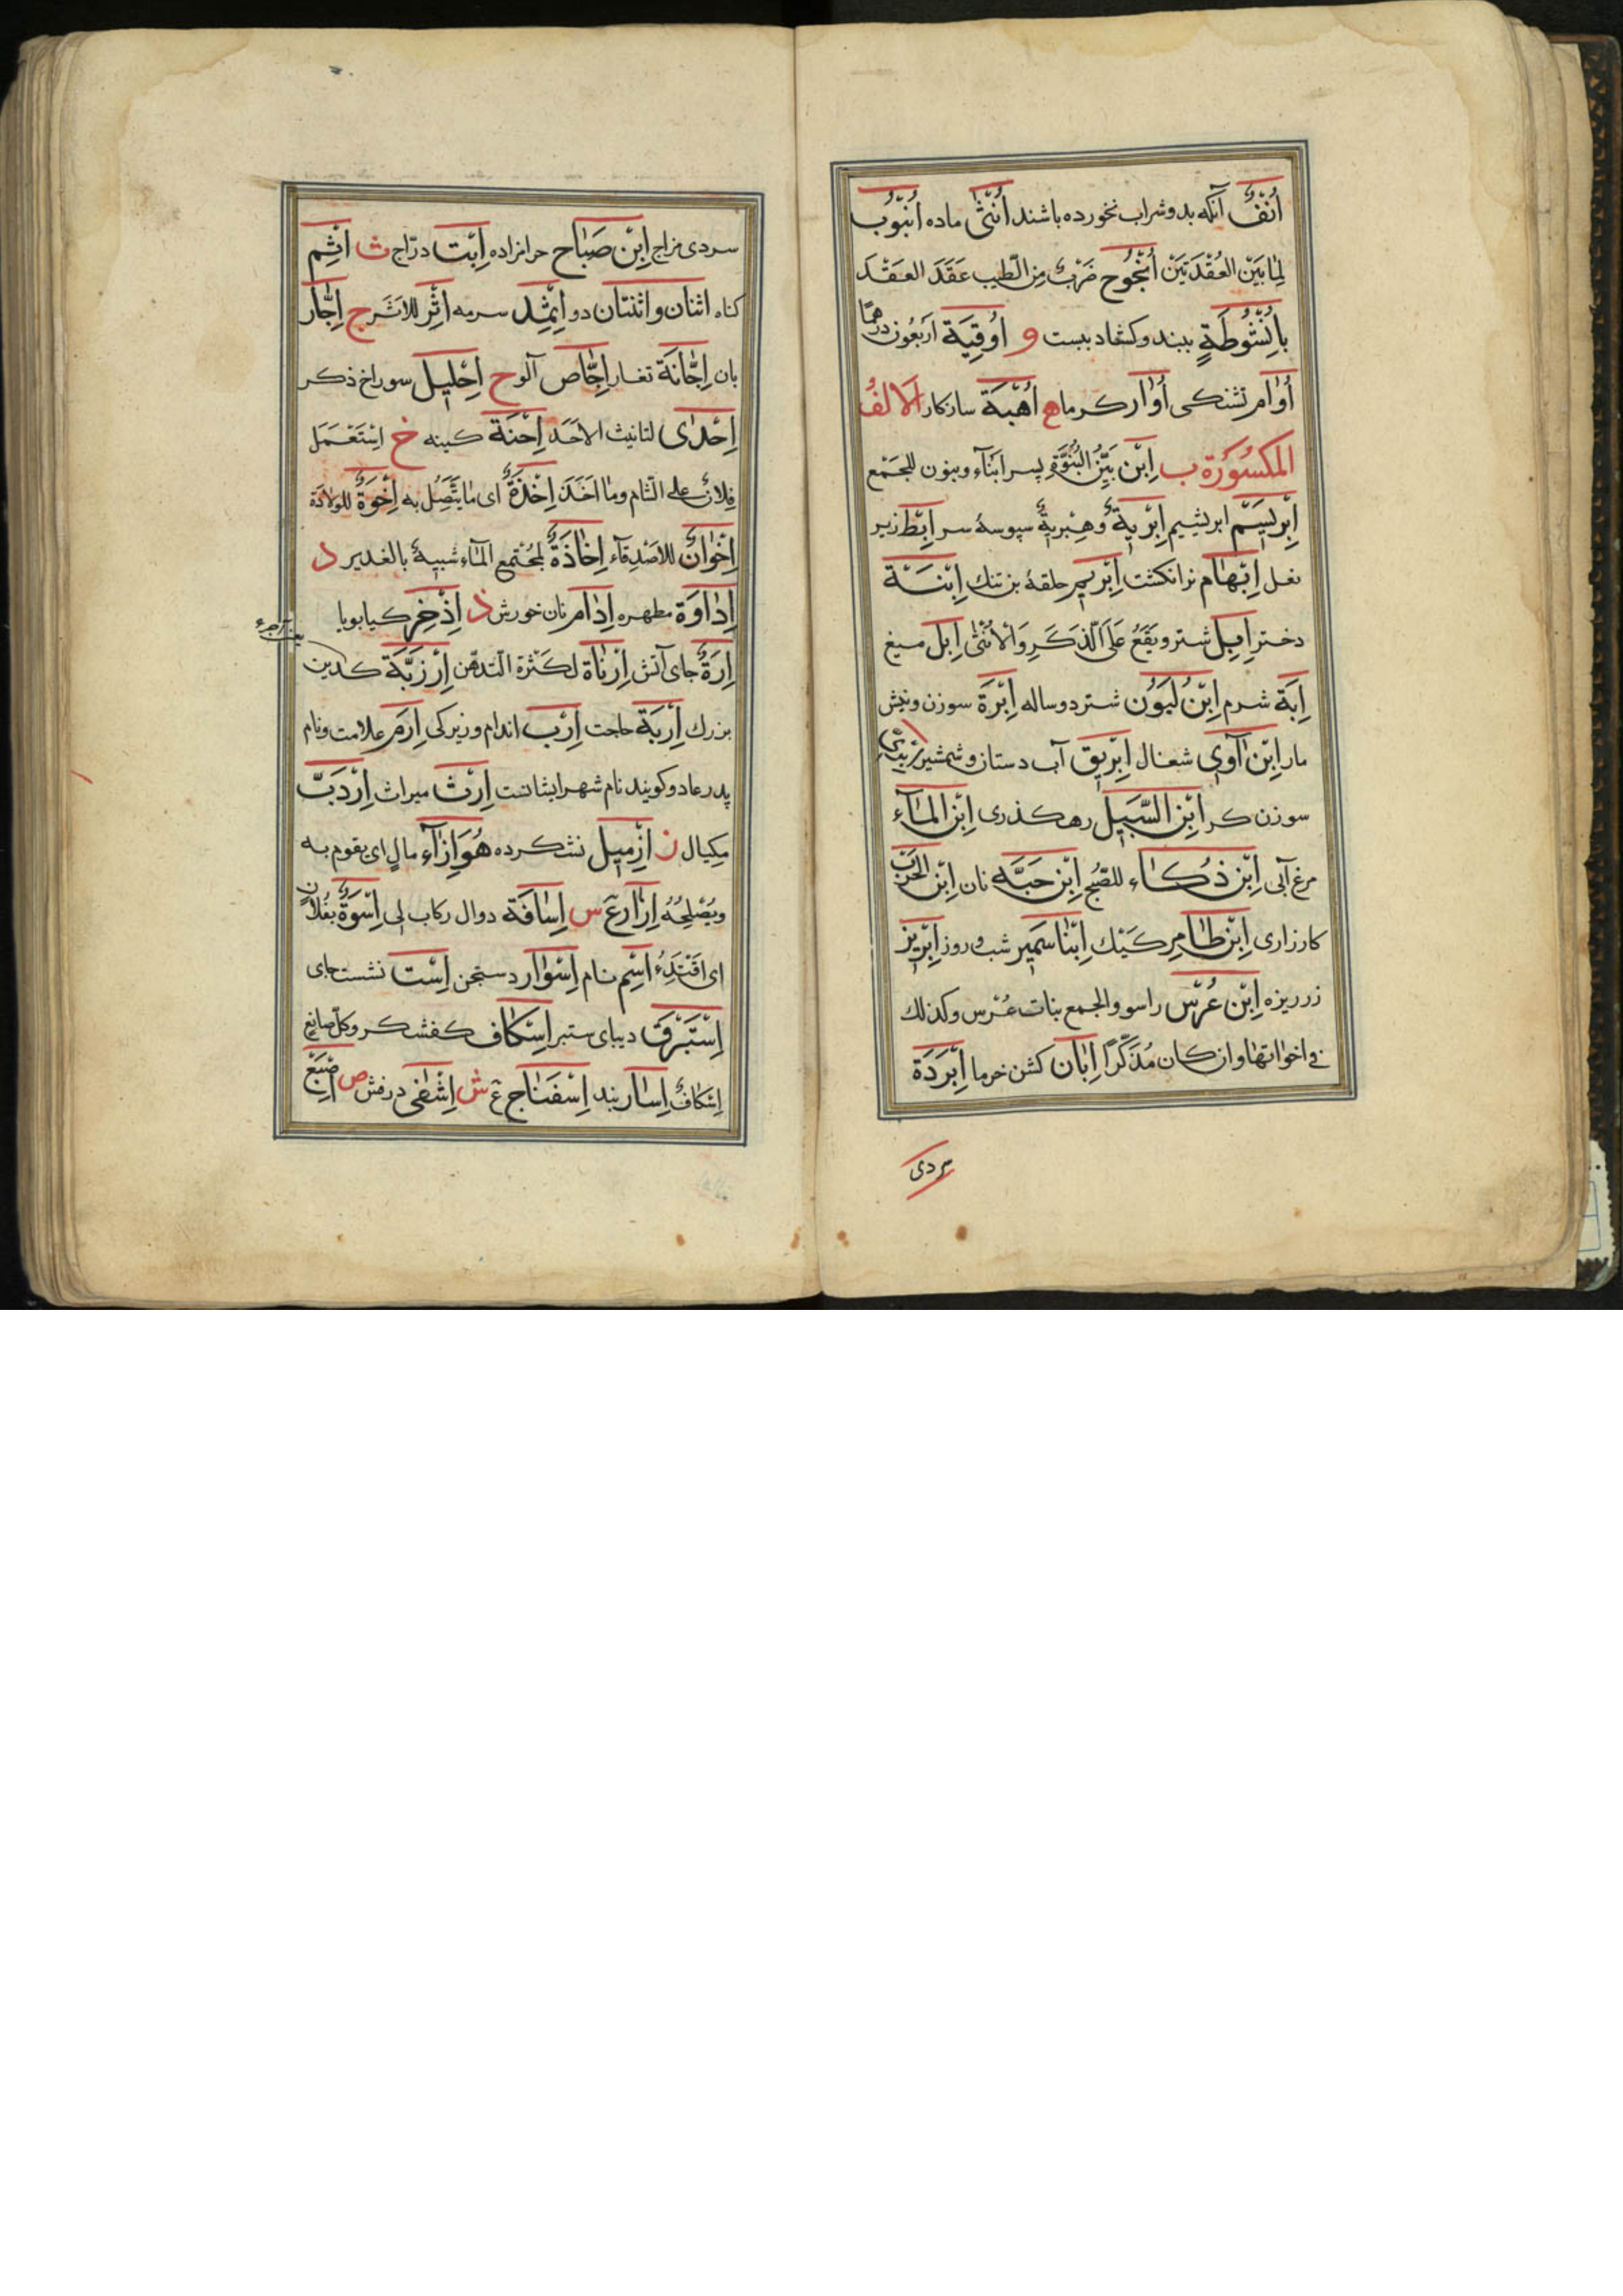 اُنُفٌ آنکه بدو شراب نخورده باشند اُنْثٰی ماده اُنْبُوب
لِمَا بَيْنَ العُقْدَتَيْنِ اُنْجُوج ضَرْبٌ مِنَ الطّيب عَقَدَ العَقْدَ
بِاُنْشُوطَةٍ ببند و کشاد ببست و اُوقِيَة اَرْبَعُون درهمًا
اُوٰام تشنکی اُوٰار کرما ه اُهْبَة سازکار الالف
المکسُورَة ب اِبْن بَيِّنُ البُنُوَّةِ پسر ابنآء وبنون للجَمْع
اِبْرِيسَم ابریشیم اِبْرِيَةٌ وهِبْرِيةٌ سپوسهٔ سر اِبْط زیر
بغل اِبْهٰام نرانکشت اِبْزِيم حلقهٔ بزتنک اِبْنَة
دختر اِبِل شتر ويَقَعُ عَلَی الذَّکَرِ وَالاُنْثٰی اِبِل میغ
اِبَة شرم اِبْنُ لَبُون شتر دوساله اِبْرَة سوزن ونیش
مار اِبْن آوٰی شغال اِبْرِيق آب دستان وشمشیر
سوزن کر اِبْن السَّبِيل رهکذری اِبْن المٰآء
مرغ آبی اِبْن ذُکٰاء للصّبح اِبْن حَبَّه نان اِبْن الحَرْب
کارزاری اِبْن طٰامِر کَیْک اِبْنٰا سَمِير شب وروز اِبْرِيز
زر ریزه اِبْن عُرْس راسو والجمع بنات عُرْس وکذلک
فی اخواتها وان کان مُذَکَّرًا اِبَان کشن خرما اِبْرَدَة
سردی
سردی مزاج اِبْن صَبَاح حرامزاده اِبَّت درّاج ث اِثْم
کناه اثنٰان و اثنتٰان دو اِثْمِد سرمه اِثْر للاَثَر ج اِجّٰار
بان اِجّٰانَة تغار اِجّٰاص آلو ح اِحْلِيل سوراخ ذکر
اِحْدٰی لتانیث الاحَد اِحْنَة کینه خ اِسْتَعْمَل
فِلانٌ علی الشّام وما اَخَذَ اِخْذَةٌ ای مٰا يَتَّصِلُ به اِخْوَةٌ للولادَة
اِخْوٰانٌ للاَصْدِقآء اِخٰاذَةٌ لمجْتَمع المٰآء شبیهٌ بالغدیر د
اِدٰاوَة مطهره اِدٰام نان خورش ذ اِذْخِر کیا بویا
اِرَةٌ جای آتش اِرْنٰاة لکَثْرَة التدهّن اِرْزَبَّة کدین
بزرک اِرْبَة حاجت اِرْب اندام وزیرکی اِرَم علامت ونام
پدر عاد وکویند نام شهر ایشانست اِرْث میراث اِرْدَبّ
مِکیال ز اِزْمِيل نشکرده هُوَ اِزٰآء مالٍ ای یقوم به
ويُصْلِحُهُ اِزٰار ع س اِسٰافَة دوال رکاب لی اِسْوَةٌ بفُلانٍ
ای اقْتِدَاءٌ اِسْم نام اِسْوٰار دستنجن اِسْت نشست جای
اِسْتَبْرَق دیبای ستبر اِسْکٰاف کفشکر وکلّ صانعٍ
اِسْکٰافٌ اِسٰار بند اِسْفَنٰاج ع ش اِشْفٰی درفش ص اِصْبَع